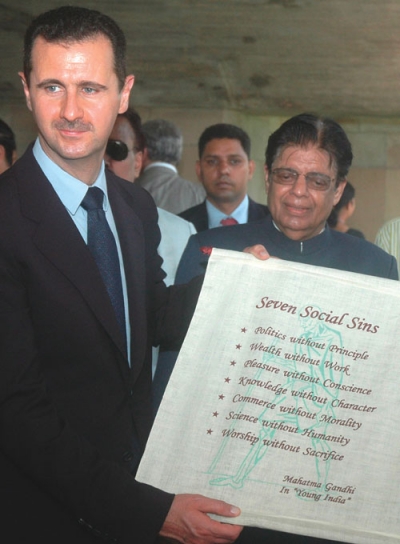 Seven Social Sins
★ Politics without Principle
★ Wealth without Work
★ Pleasure without Conscience
★ Knowledge without Character
★ Commerce without Morality
★ Science without Humanity
★ Worship without Sacrifice
Mahatma Gandhi
In "Young India"